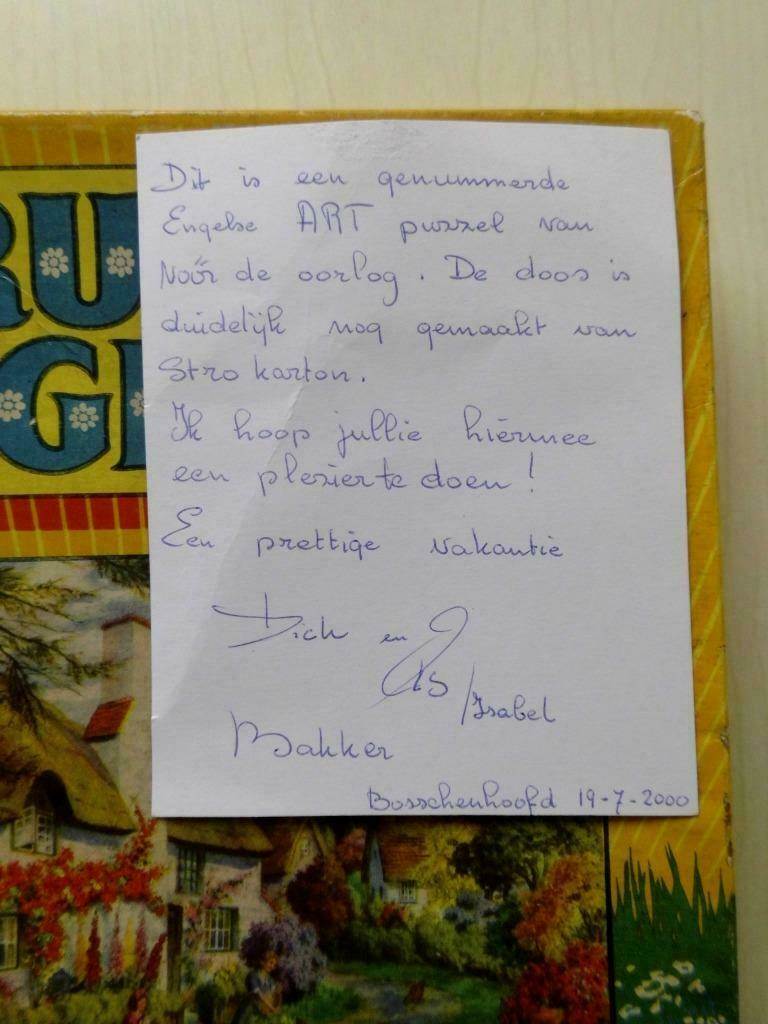 RU
GI
Dit is een genummerde
Engelse ART puzzel van
vóór de oorlog. De doos is
duidelijk nog gemaakt van
Stro karton.
Ik hoop jullie hiermee
een plezier te doen!
Een prettige vakantie
Dick en
/Isabel
Bakker
Bosschenhoofd 19-7-2000